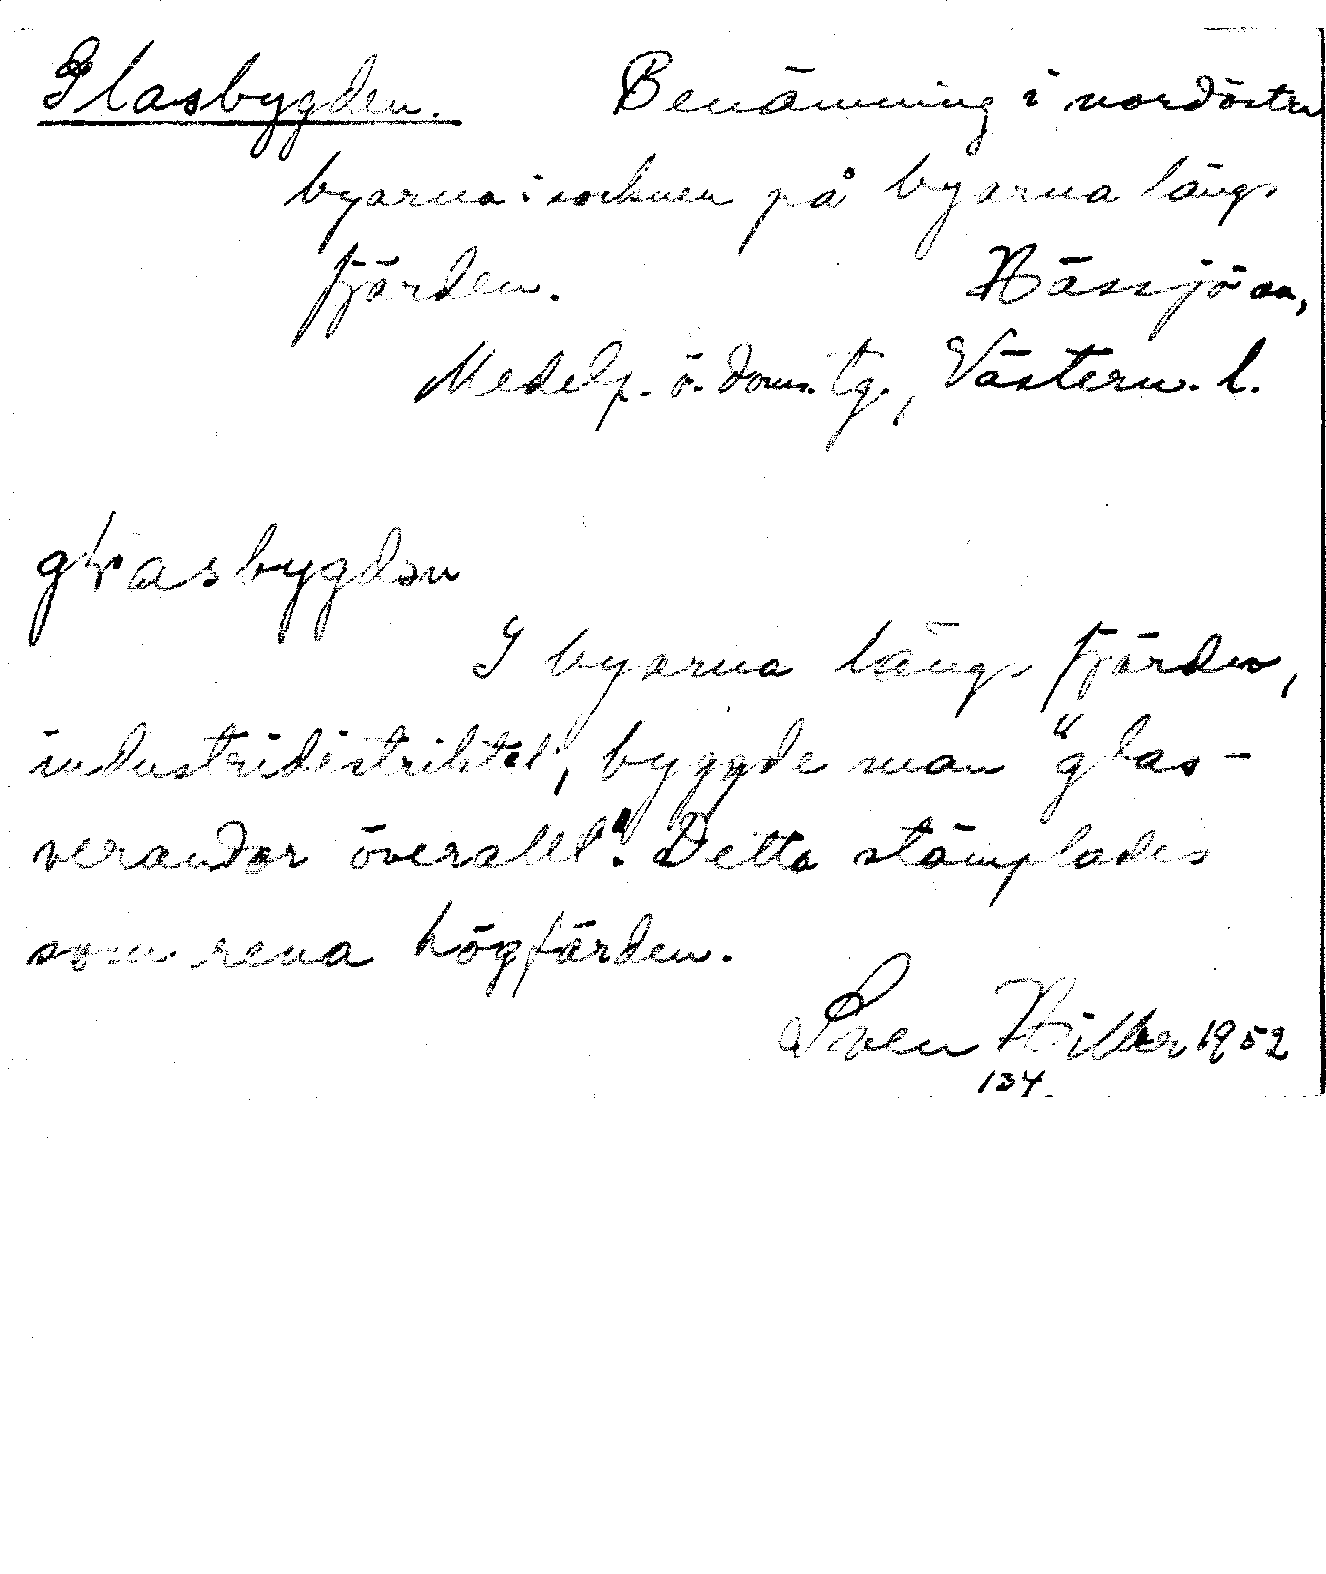 Glasbygden. Benämning i nordöstra
byarna i socknen på byarna längs
fjärden. Hässjö sn,
Medelp. ö. doms. tg., Västern. l.
glasbygden
I byarna längs fjärden,
industridistriktet, byggde man "glas-
verandor överallt". Detta stämplades
som rena högfärden.
Sven Hiller 1952
134